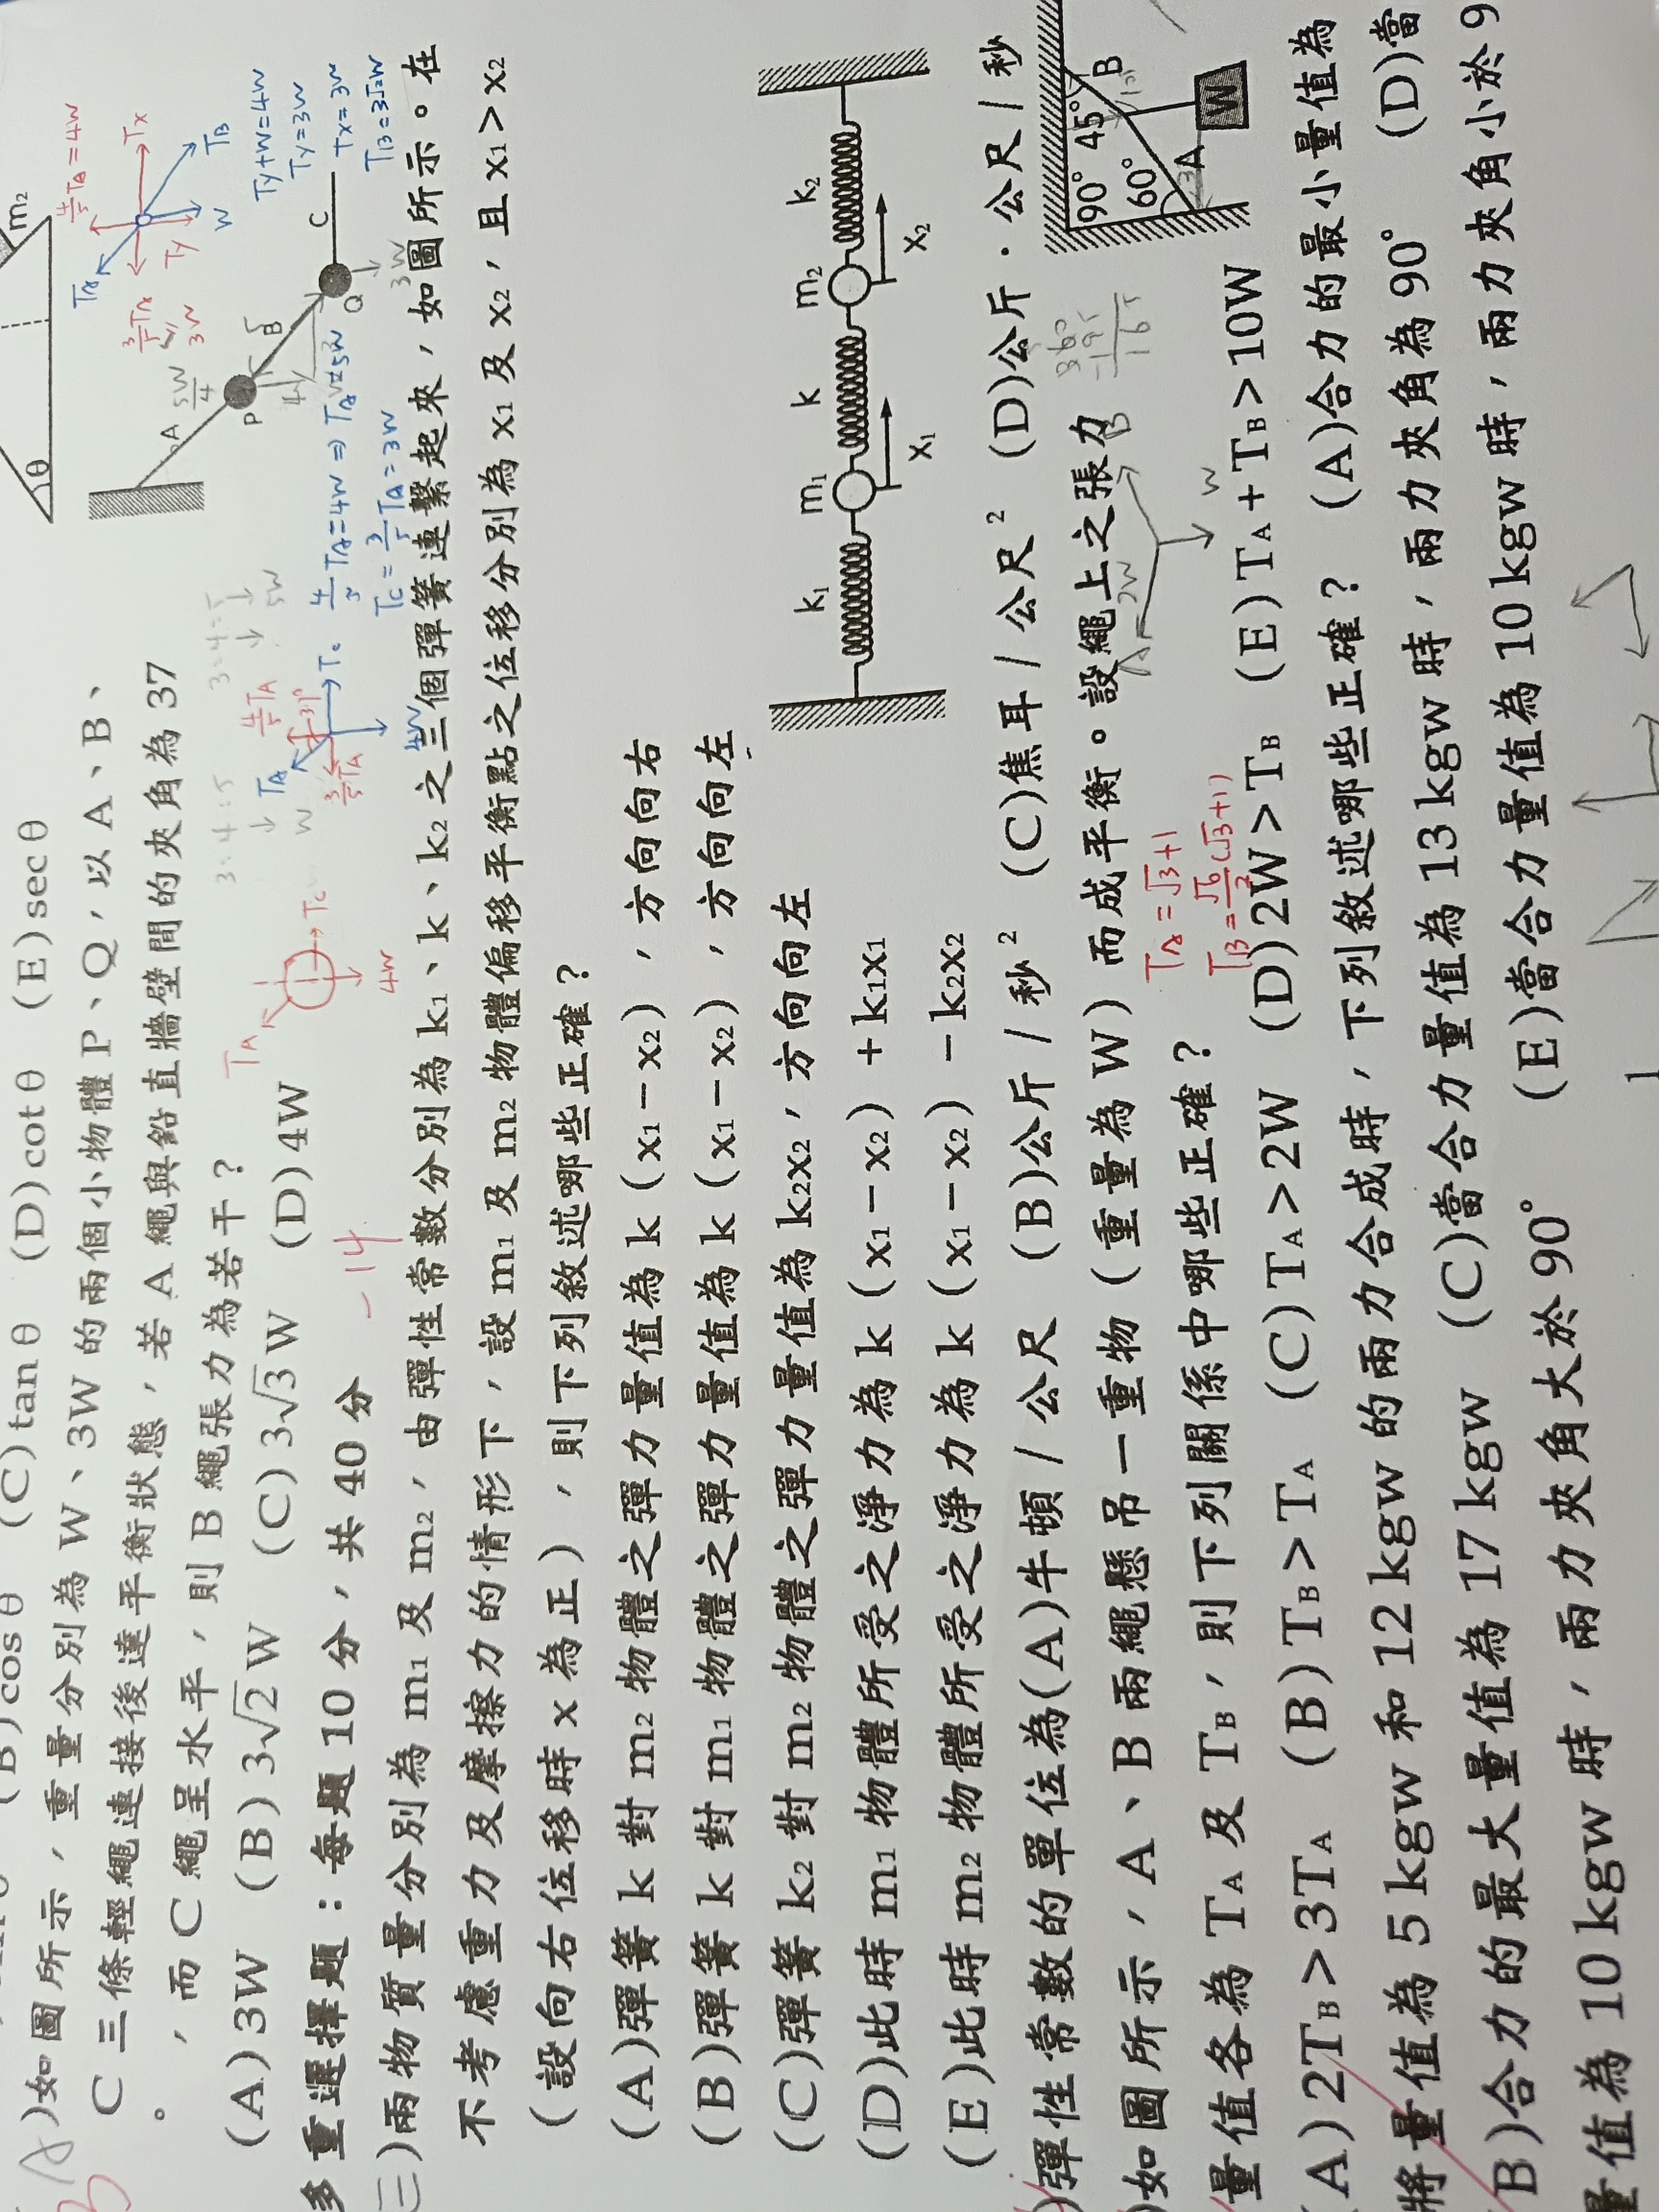 (B)cosθ (C)tanθ (D)cotθ (E)secθ
)如圖所示，重量分別為 W、3W 的兩個小物體 P、Q，以 A、B、
C 三條輕繩連接後達平衡狀態，若 A 繩與鉛直牆壁間的夾角為 37
°，而 C 繩呈水平，則 B 繩張力為若干？
(A)3W (B)3√2W (C)3√3W (D)4W
-14
多重選擇題：每題 10 分，共 40 分
(三)兩物質量分別為 m₁ 及 m₂，由彈性常數分別為 k₁、k、k₂ 之三個彈簧連繫起來，如圖所示。在
不考慮重力及摩擦力的情形下，設 m₁ 及 m₂ 物體偏移平衡點之位移分別為 x₁ 及 x₂，且 x₁＞x₂
（設向右位移時 x 為正），則下列敘述哪些正確？
(A)彈簧 k 對 m₂ 物體之彈力量值為 k（x₁－x₂），方向向右
(B)彈簧 k 對 m₁ 物體之彈力量值為 k（x₁－x₂），方向向左
(C)彈簧 k₂ 對 m₂ 物體之彈力量值為 k₂x₂，方向向左
(D)此時 m₁ 物體所受之淨力為 k（x₁－x₂）＋k₁x₁
(E)此時 m₂ 物體所受之淨力為 k（x₁－x₂）－k₂x₂
)彈性常數的單位為(A)牛頓／公尺 (B)公斤／秒² (C)焦耳／公尺² (D)公斤．公尺／秒
)如圖所示，A、B 兩繩懸吊一重物（重量為 W）而成平衡。設繩上之張力
量值各為 T_A 及 T_B，則下列關係中哪些正確？
(A)2T_B＞3T_A (B)T_B＞T_A (C)T_A＞2W (D)2W＞T_B (E)T_A＋T_B＞10W
將量值為 5 kgw 和 12 kgw 的兩力合成時，下列敘述哪些正確？ (A)合力的最小量值為
(B)合力的最大量值為 17 kgw (C)當合力量值為 13 kgw 時，兩力夾角為 90° (D)當
量值為 10 kgw 時，兩力夾角大於 90° (E)當合力量值為 10 kgw 時，兩力夾角小於 9
θ
m₂
A
P
B
Q
C
T_A
4/5 T_A = 4W
T_x
3/5 T_A
3W
T_y
W
T_B
T_y+W=4W
T_y=3W
T_x=3W
T_B=3√2W
5W/4
3W
3:4:5
3:4:5
T_A
T_C
4W
T_A
4/5 T_A
37°
3/5 T_A
T_C
4W
4/5 T_A=4W ⇒ T_A=5W
T_C = 3/5 T_A = 3W
k₁
m₁
k
m₂
k₂
x₁
x₂
90° 45°
60°
A
B
W
360
-195
165
2W
W
T_A = √3+1
T_B = √6/2 (√3+1)